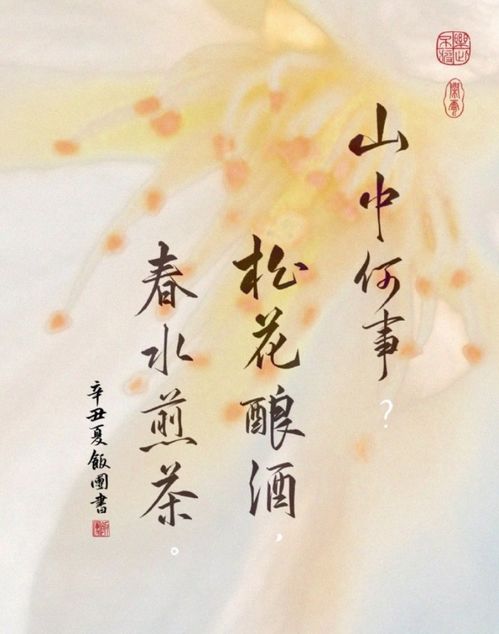 山中何事？
松花酿酒，
春水煎茶。
辛丑夏飯團書